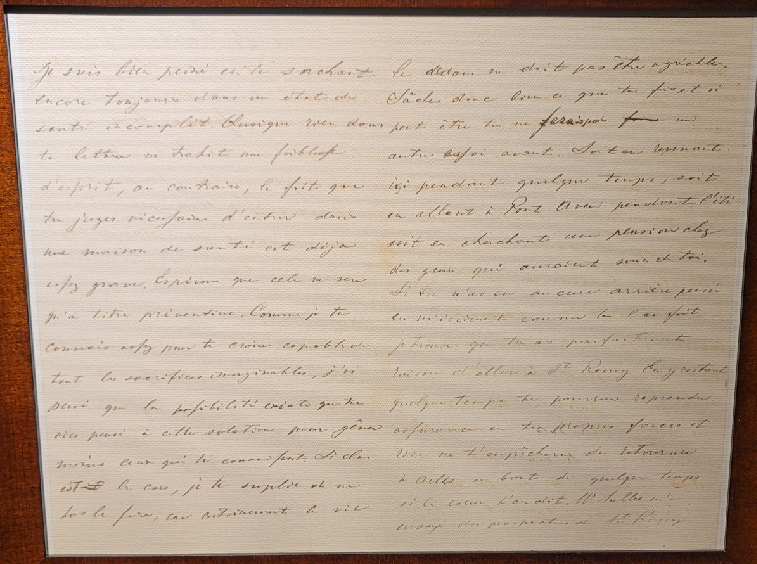 Je suis bien peiné en te sachant
encore toujours dans un état de
santé incomplet. Quoique rien dans
ta lettre ne trahit une faiblesse
d'esprit, au contraire, le fait que
tu juges nécessaire d'entrer dans
une maison de santé est déjà
assez grave. Espérons que cela ne sera
qu'à titre préventive. Comme je te
connais assez pour te croire capable de
tout les sacrifices imaginables, j'ai
pensé que la possibilité existe que tu
aies pensé à cette solution pour gêner
moins ceux qui te connaissent. Si cela
est le cas, je te supplie de ne
pas le faire, car certainement la vie
là dedans ne doit pas être agréable.
Sâches donc bien ce que tu fais et si
peut être tu ne ferais pas un
autre essai avant. Soit en revenant
ici pendant quelque temps, soit
en allant à Pont Aven pendant l'été
soit en cherchant une pension chez
des gens qui auraient soin de toi.
Si tu n'as eu aucune arrière pensée
en écrivant comme tu l'as fait
je trouve que tu as parfaitement
raison d'aller à St Remy. En y restant
quelque temps tu pourras reprendre
assurance en tes propres forces et
rien ne t'empêchera de retourner
à Arles au bout de quelque temps
si le coeur t'en dit. Mr Salles m'a
envoyé des prospectus de St Remy